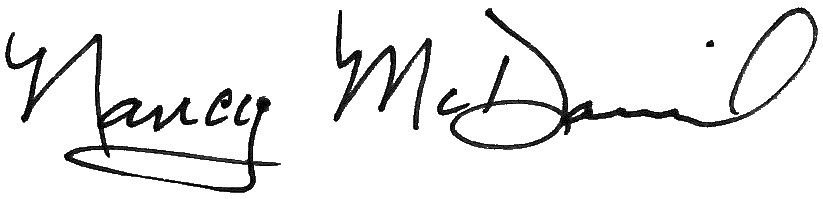 Nancy McDaniel